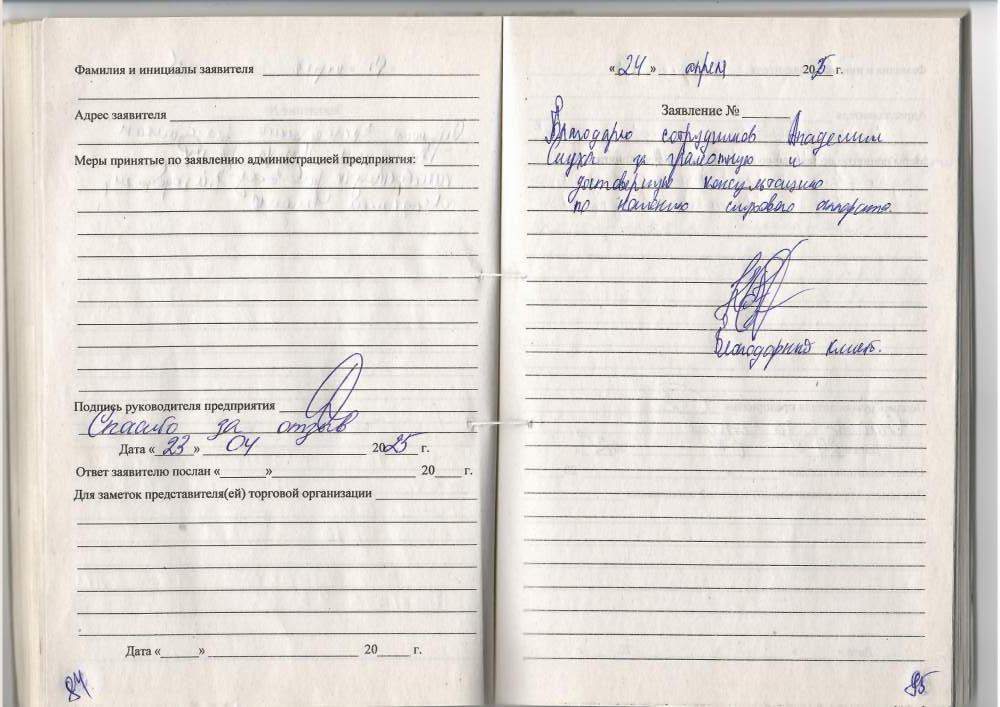 Фамилия и инициалы заявителя
Адрес заявителя
Меры принятые по заявлению администрацией предприятия:
Подпись руководителя предприятия
Спасибо за отзыв
Дата «23» 04 2025 г.
Ответ заявителю послан «» 20 г.
Для заметок представителя(ей) торговой организации
Дата «» 20 г.
84
«24» апреля 2025 г.
Заявление №
Благодарю сотрудников Академии
Слуха за грамотную и
достоверную консультацию
по ношению слухового аппарата.
Благодарный клиент.
85